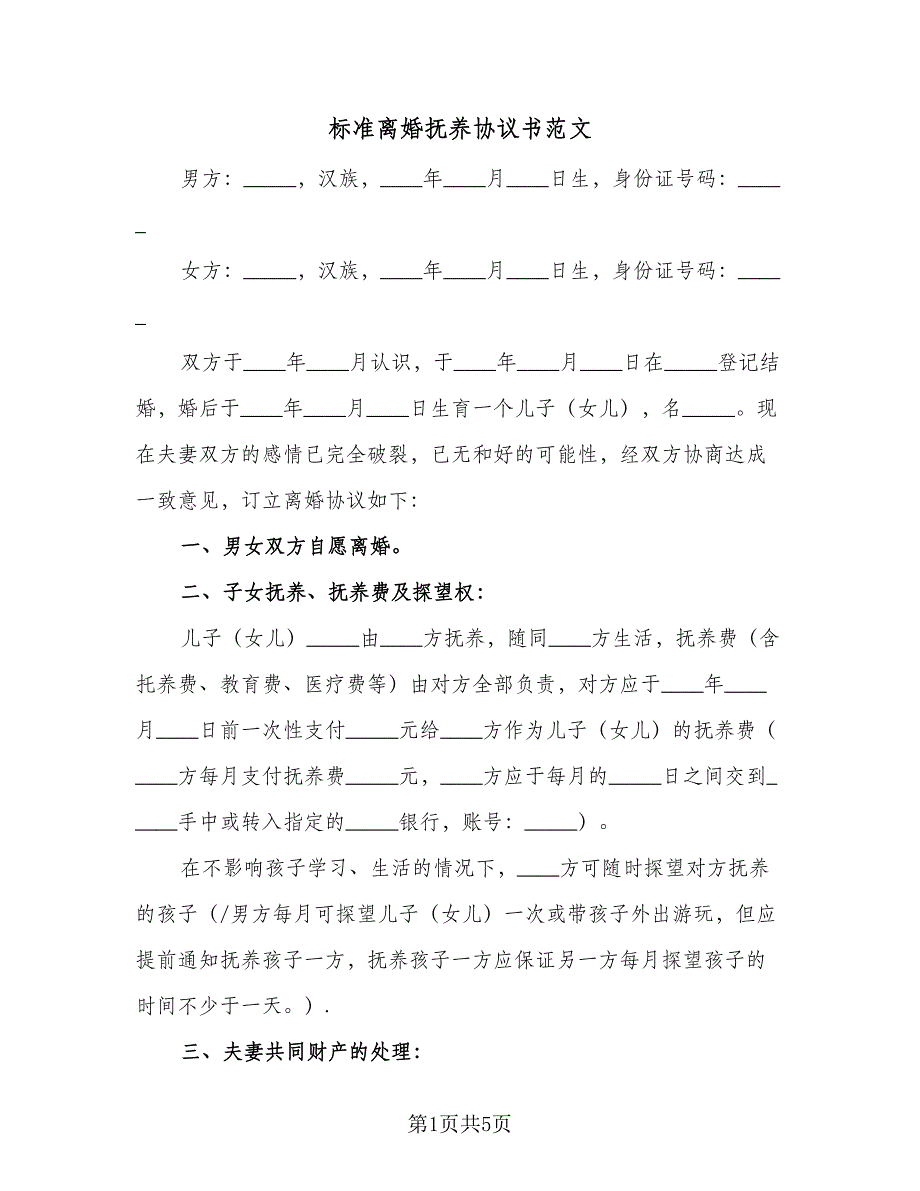 标准离婚抚养协议书范文
男方：_____，汉族，____年____月____日生，身份证号码：____
_
女方：_____，汉族，____年____月____日生，身份证号码：____
_
双方于____年____月认识，于____年____月____日在_____登记结
婚，婚后于____年____月____日生育一个儿子（女儿），名_____。现
在夫妻双方的感情已完全破裂，已无和好的可能性，经双方协商达成
一致意见，订立离婚协议如下：
一、男女双方自愿离婚。
二、子女抚养、抚养费及探望权：
儿子（女儿）_____由____方抚养，随同____方生活，抚养费（含
托养费、教育费、医疗费等）由对方全部负责，对方应于____年____
月____日前一次性支付_____元给____方作为儿子（女儿）的抚养费（
____方每月支付抚养费_____元，____方应于每月的_____日之间交到_
____手中或转入指定的_____银行，账号：_____）。
在不影响孩子学习、生活的情况下，____方可随时探望对方抚养
的孩子（/男方每月可探望儿子（女儿）一次或带孩子外出游玩，但应
提前通知抚养孩子一方，抚养孩子一方应保证另一方每月探望孩子的
时间不少于一天。）.
三、夫妻共同财产的处理：
第1页共5页